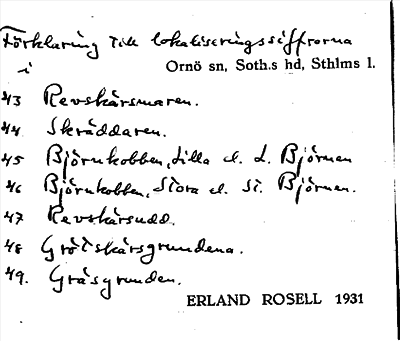 Förklaring till lokaliseringssiffrorna
i Ornö sn, Soth.s hd, Sthlms l.
43 Revskärsmaren.
44 Skräddaren.
45 Björnkobben, Lilla el. L. Björnen
46 Björnkobben, Stora el. St. Björnen.
47 Revskärsudd.
48 Grötskärsgrundena.
49. Gräsgrunden.
ERLAND ROSELL 1931